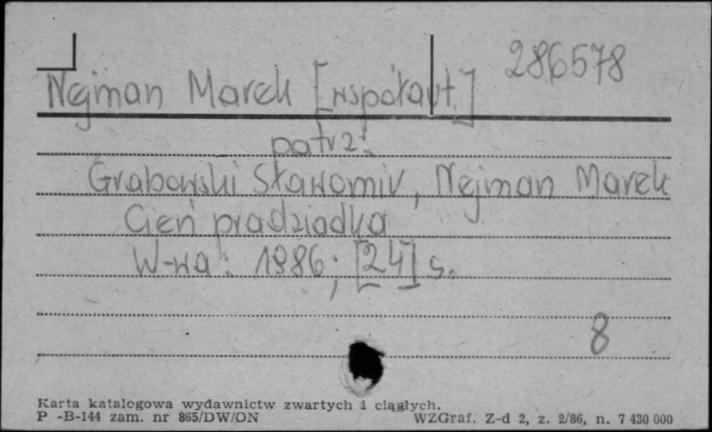 286578
Nejman Marek [współaut.]
patrz:
Grabowski Sławomir, Nejman Marek
Cień pradziadka
W-wa: 1986; [24] s.
8
Karta katalogowa wydawnictw zwartych i ciągłych.
P -B-144 zam. nr 865/DW/ON
WZGraf. Z-d 2, z. 2/86, n. 7 430 000